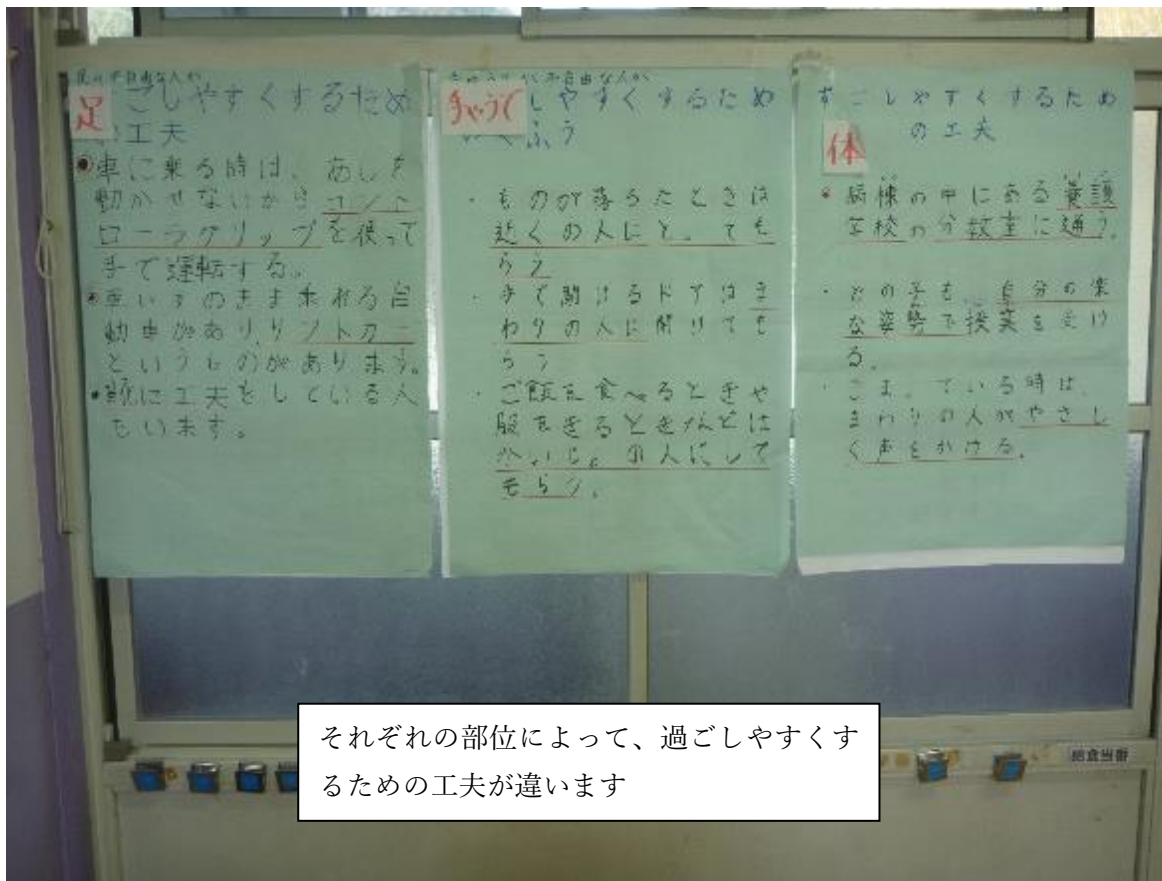 足の不自由な人が
足
ごしやすくするため
の工夫
車に乗る時は、あしを
動かせないからコント
ローラグリップを使って
手で運転する。
車いすのまま乗れる自
動車がありリントカー
というものがあります。
靴に工夫をしている人
もいます。
手やうでが不自由な人が
手やうで
しやすくするため
のくふう
・ものが落ちたときは
近くの人にとっても
らう
・手で開けるドアはま
わりの人に開けても
らう
・ご飯を食べるときや
服をきるときなどは
かいじょの人にして
もらう。
すごしやすくするため
の工夫
体
・病棟の中にある養護
学校の分教室に通う。
・どの子も、自分の楽
な姿勢で授業を受け
る。
・こまっている時は、
まわりの人がやさし
く声をかける。
それぞれの部位によって、過ごしやすくす
るための工夫が違います
給食当番